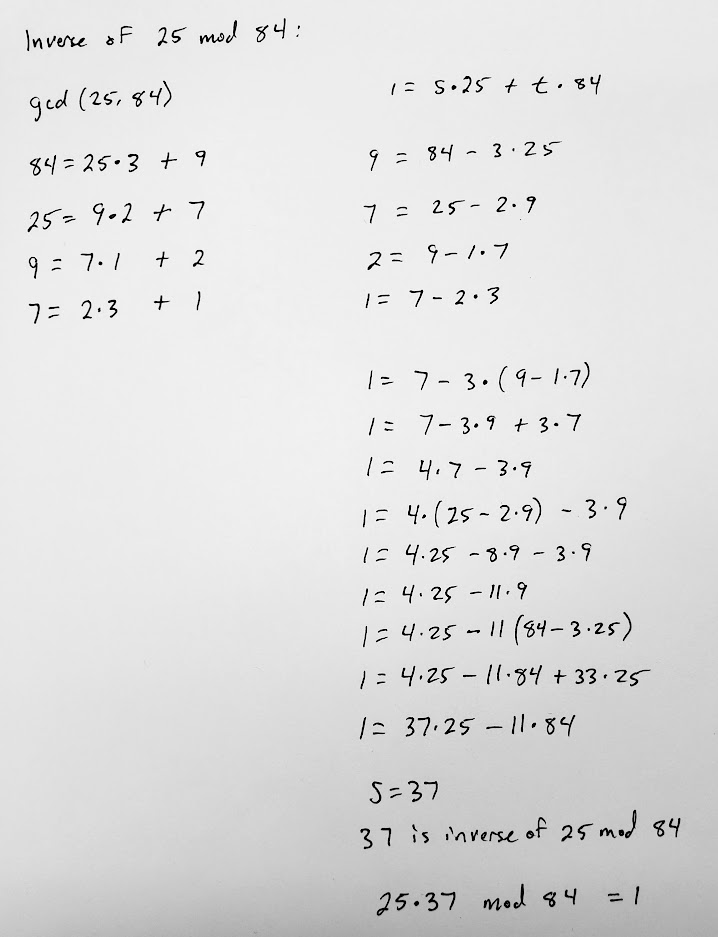 Inverse of 25 mod 84:
gcd (25, 84)
84 = 25·3 + 9
25 = 9·2 + 7
9 = 7·1 + 2
7 = 2·3 + 1
1 = s·25 + t·84
9 = 84 - 3·25
7 = 25 - 2·9
2 = 9 - 1·7
1 = 7 - 2·3
1 = 7 - 3·(9 - 1·7)
1 = 7 - 3·9 + 3·7
1 = 4·7 - 3·9
1 = 4·(25 - 2·9) - 3·9
1 = 4·25 - 8·9 - 3·9
1 = 4·25 - 11·9
1 = 4·25 - 11 (84 - 3·25)
1 = 4·25 - 11·84 + 33·25
1 = 37·25 - 11·84
S = 37
37 is inverse of 25 mod 84
25·37 mod 84 = 1